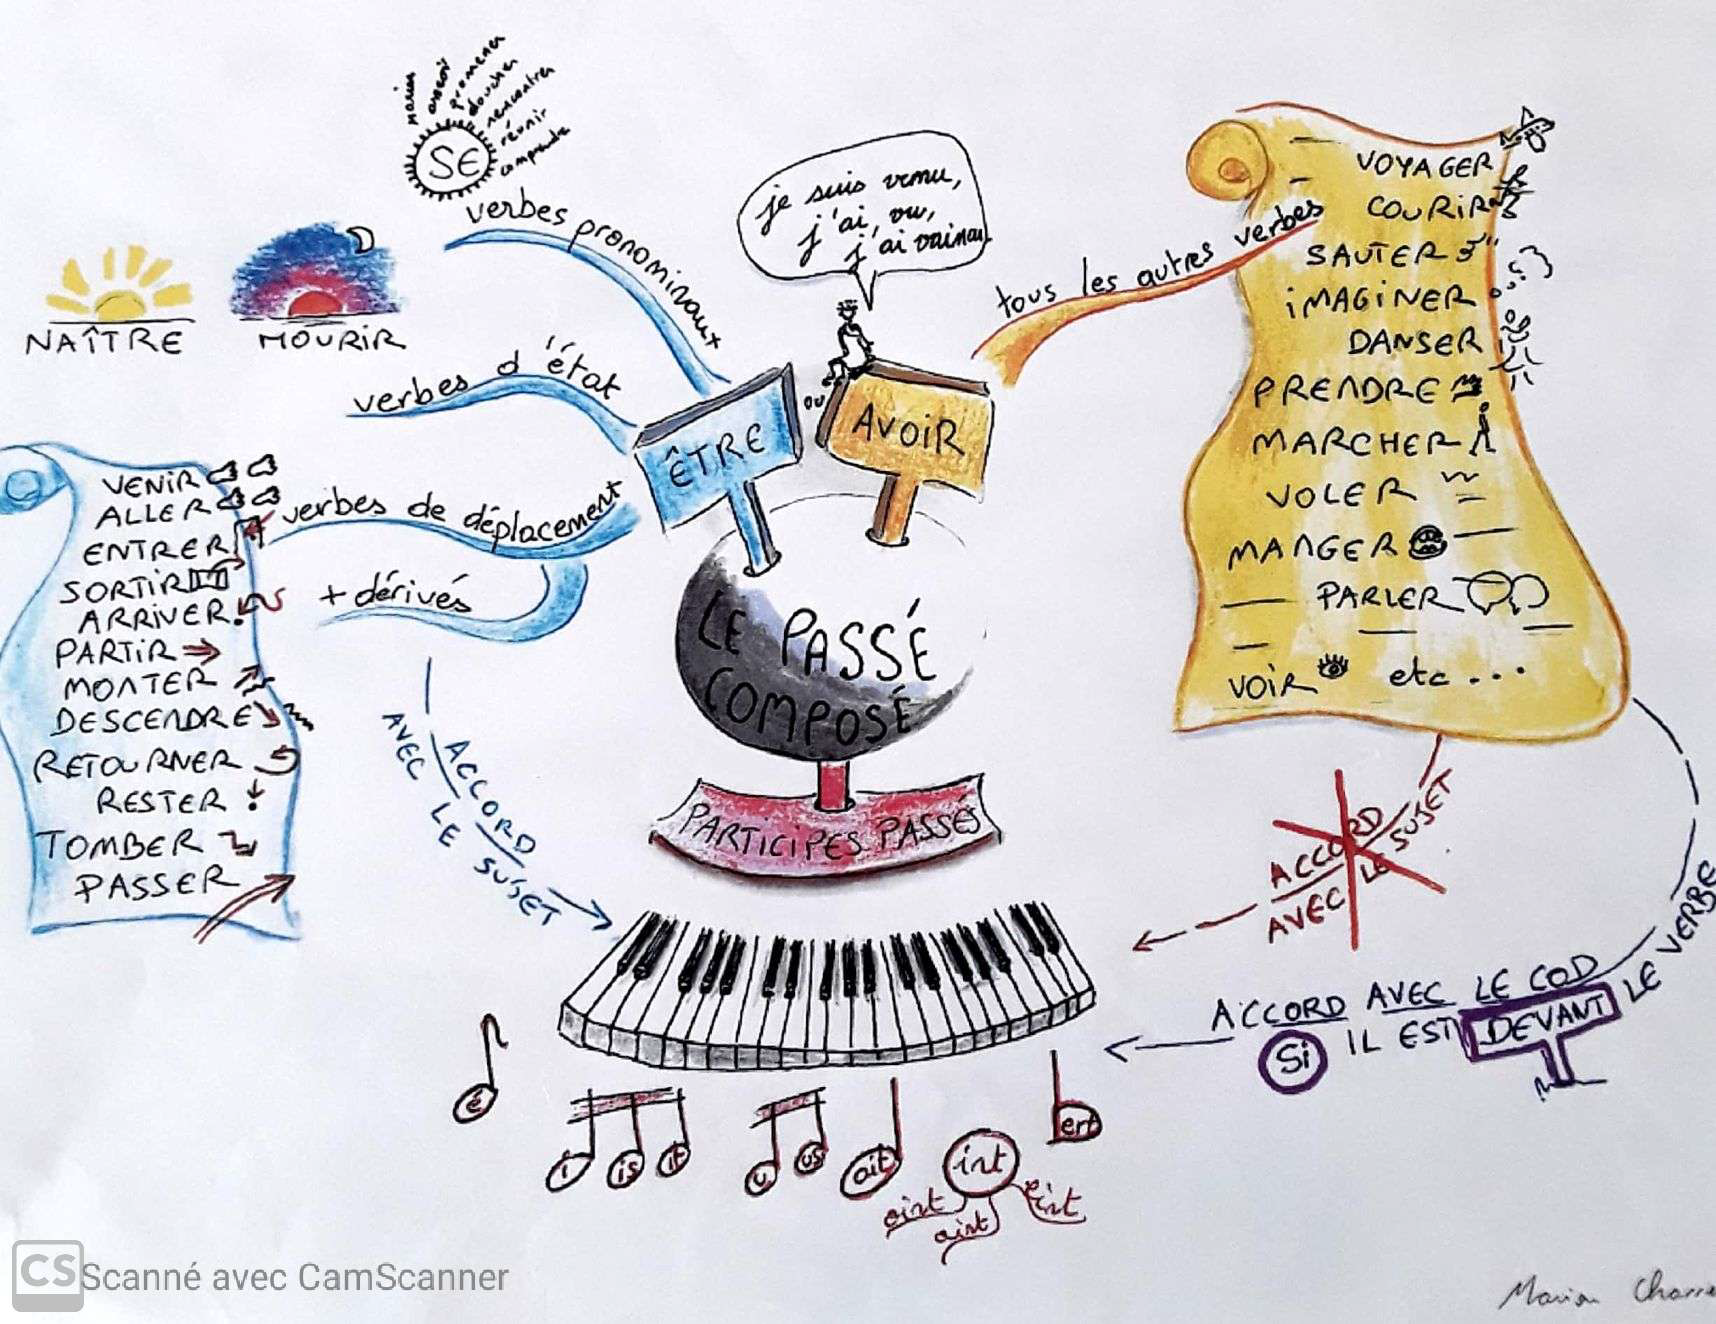 marier
asseoir
promener
doucher
rencontrer
réunir
comprendre
SE
verbes pronominaux
NAÎTRE
MOURIR
verbes d'état
verbes de déplacement
+ dérivés
VENIR
ALLER
ENTRER
SORTIR
ARRIVER
PARTIR
MONTER
DESCENDRE
RETOURNER
RESTER
TOMBER
PASSER
je suis venu,
j'ai vu,
j'ai vaincu.
ÊTRE
ou
AVOIR
tous les autres verbes
VOYAGER
COURIR
SAUTER
iMAGiNER
DANSER
PRENDRE
MARCHER
VOLER
MANGER
PARLER
VOIR etc...
LE PASSÉ
COMPOSÉ
PARTICIPES PASSÉS
ACCORD
AVEC LE SUJET
ACCORD
AVEC LE SUJET
ACCORD AVEC LE COD
Si IL EST DEVANT LE VERBE
é
i
is
it
u
us
ait
int
oint
aint
eint
ert
CS Scanné avec CamScanner
Marion